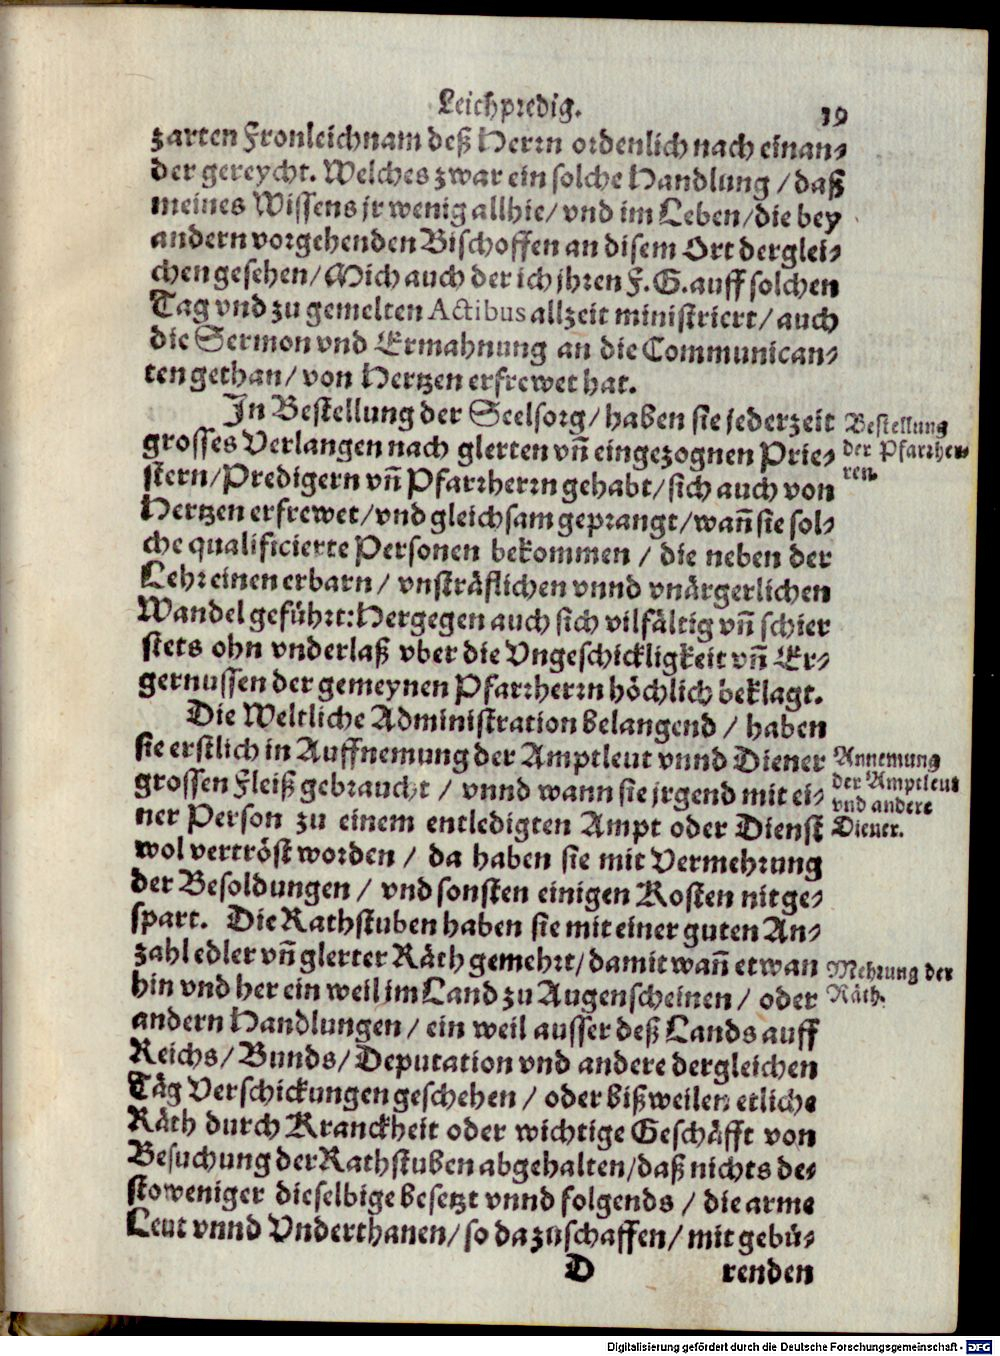 Leichpredig. 19
zarten Fronleichnam deß Herrn ordenlich nach einan-
der gereycht. Welches zwar ein solche Handlung / daß
meines Wissens jr wenig allhie / vnd im Leben / die bey
andern vorgehenden Bischoffen an disem Ort derglei-
chen gesehen / Mich auch der ich jhren F. G. auff solchen
Tag vnd zu gemelten Actibus allzeit ministriert / auch
die Sermon vnd Ermahnung an die Communican-
ten gethan / von Hertzen erfrewet hat.
In Bestellung der Seelsorg / haben sie jederzeit
Bestellung
der Pfarrher-
ren.
grosses Verlangen nach glerten vn̄ eingezognen Prie-
stern / Predigern vn̄ Pfarrherrn gehabt / sich auch von
Hertzen erfrewet / vnd gleichsam geprangt / wan̄ sie sol-
che qualificierte Personen bekommen / die neben der
Lehr einen erbarn / vnsträflichen vnnd vnärgerlichen
Wandel geführt: Hergegen auch sich vilfältig vn̄ schier
stets ohn vnderlaß vber die Vngeschickligkeit vn̄ Er-
gernussen der gemeynen Pfarrherrn höchlich beklagt.
Die Weltliche Administration belangend / haben
sie erstlich in Auffnemung der Amptleut vnnd Diener
Annemung
der Amptleut
vnd andere
Diener.
grossen Fleiß gebraucht / vnnd wann sie jrgend mit ei-
ner Person zu einem entledigten Ampt oder Dienst
wol vertröst worden / da haben sie mit Vermehrung
der Besoldungen / vnd sonsten einigen Kosten nit ge-
spart. Die Rathstuben haben sie mit einer guten An-
zahl edler vn̄ glerter Räth gemehrt / damit wan̄ etwan
Mehrung der
Räth.
hin vnd her ein weil im Land zu Augenscheinen / oder
andern Handlungen / ein weil ausser deß Lands auff
Reichs / Bunds / Deputation vnd andere dergleichen
Täg Verschickungen geschehen / oder bißweilen etliche
Räth durch Kranckheit oder wichtige Geschäfft von
Besuchung der Rathstuben abgehalten / daß nichts de-
stoweniger dieselbige besetzt vnnd folgends / die arme
Leut vnnd Vnderthanen / so da zuschaffen / mit gebü-
D renden
Digitalisierung gefördert durch die Deutsche Forschungsgemeinschaft - DFG